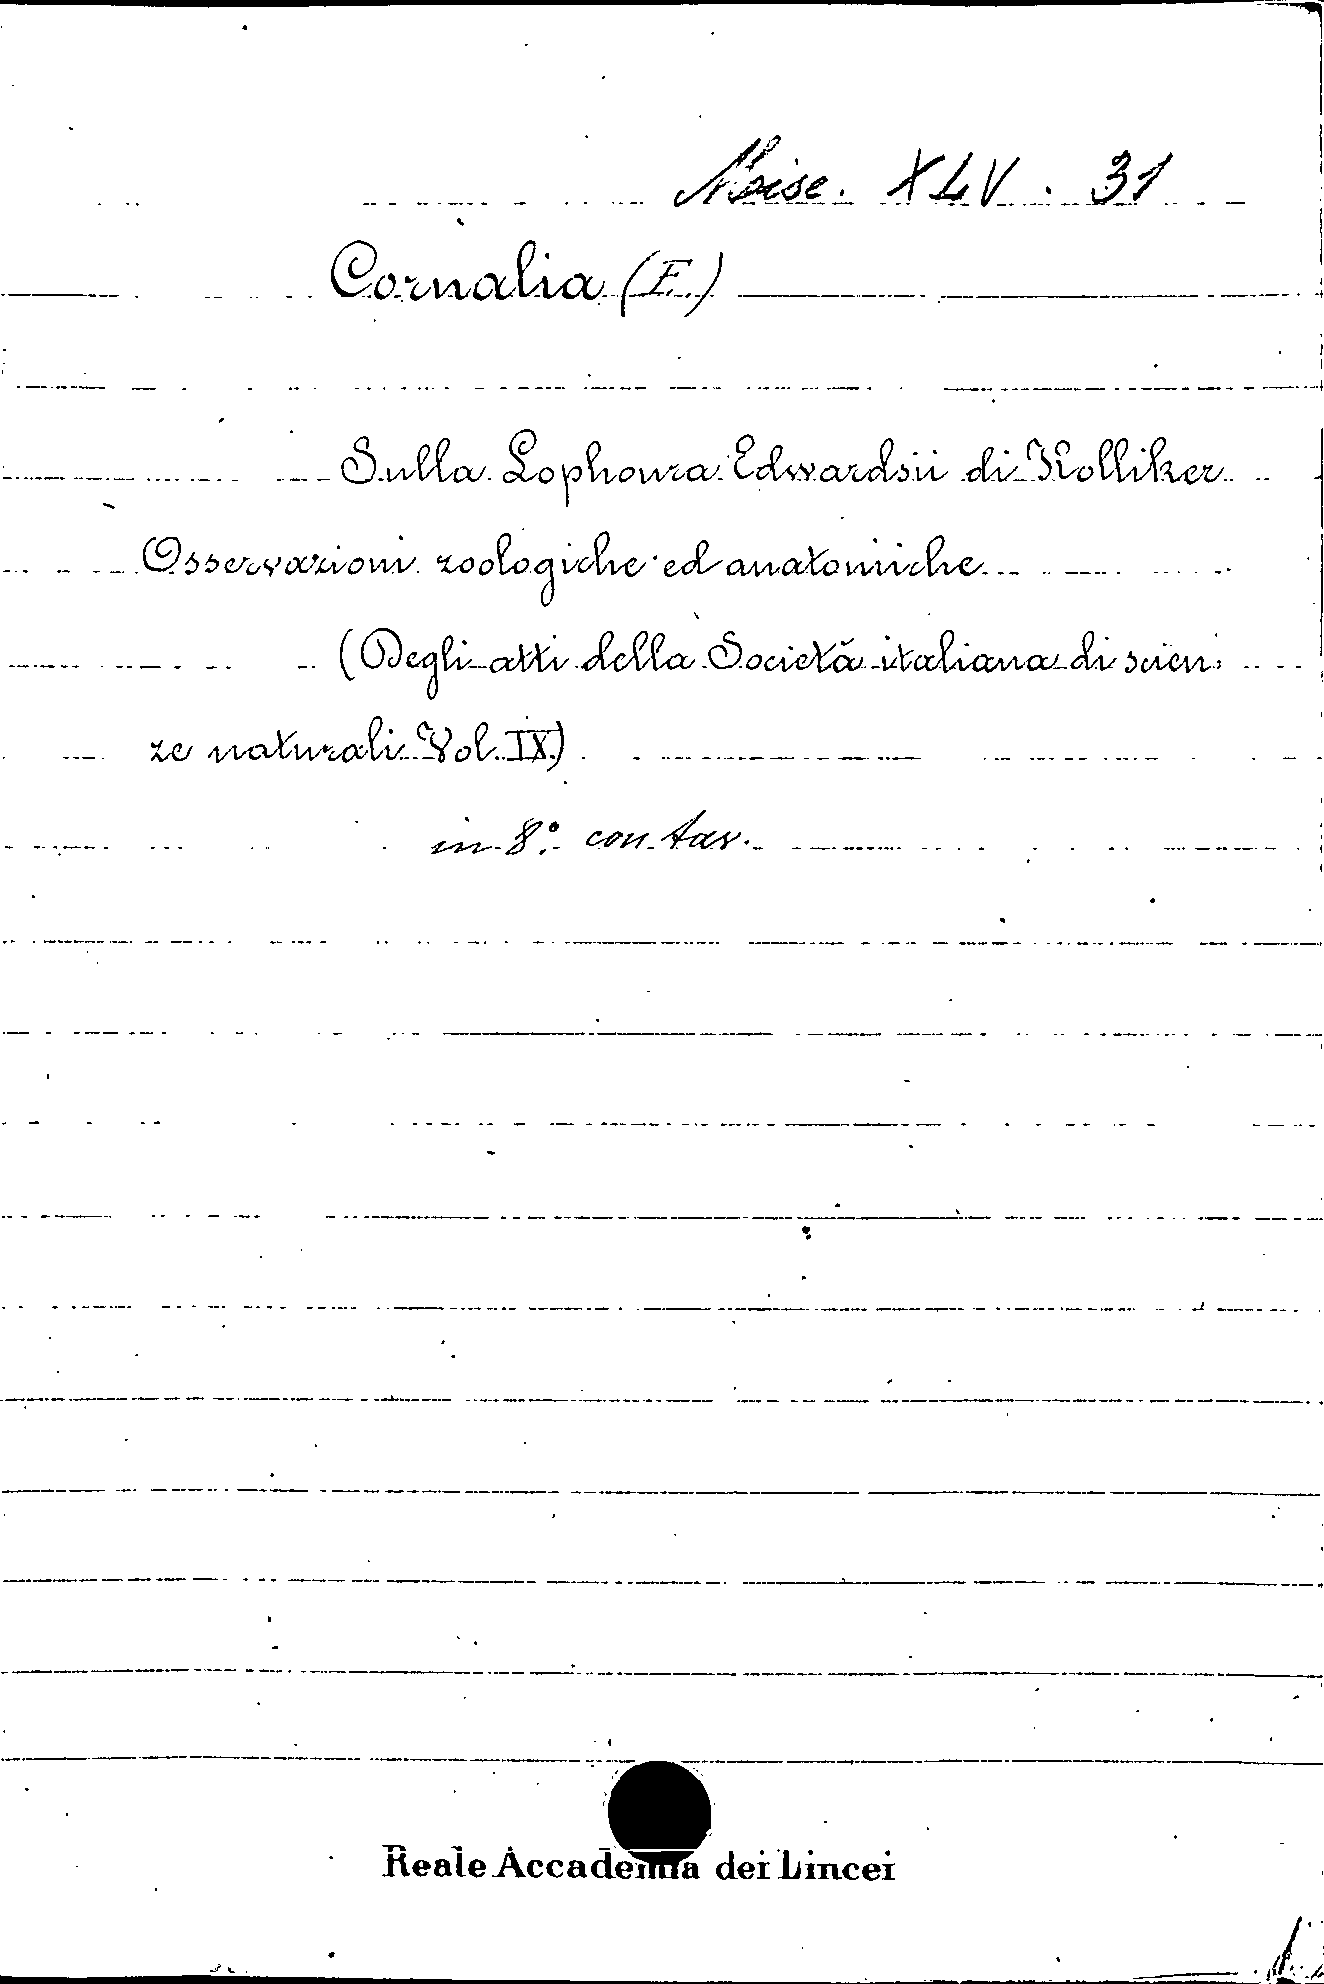 Moise. XLV. 31
Cornalia (E.)
Sulla Lophoura Edwardsii di Kolliker
Osservazioni zoologiche ed anatomiche
(Degli atti della Società italiana di scien
ze naturali Vol. IX)
in 8.° con tav.
Reale Accademia dei Lincei